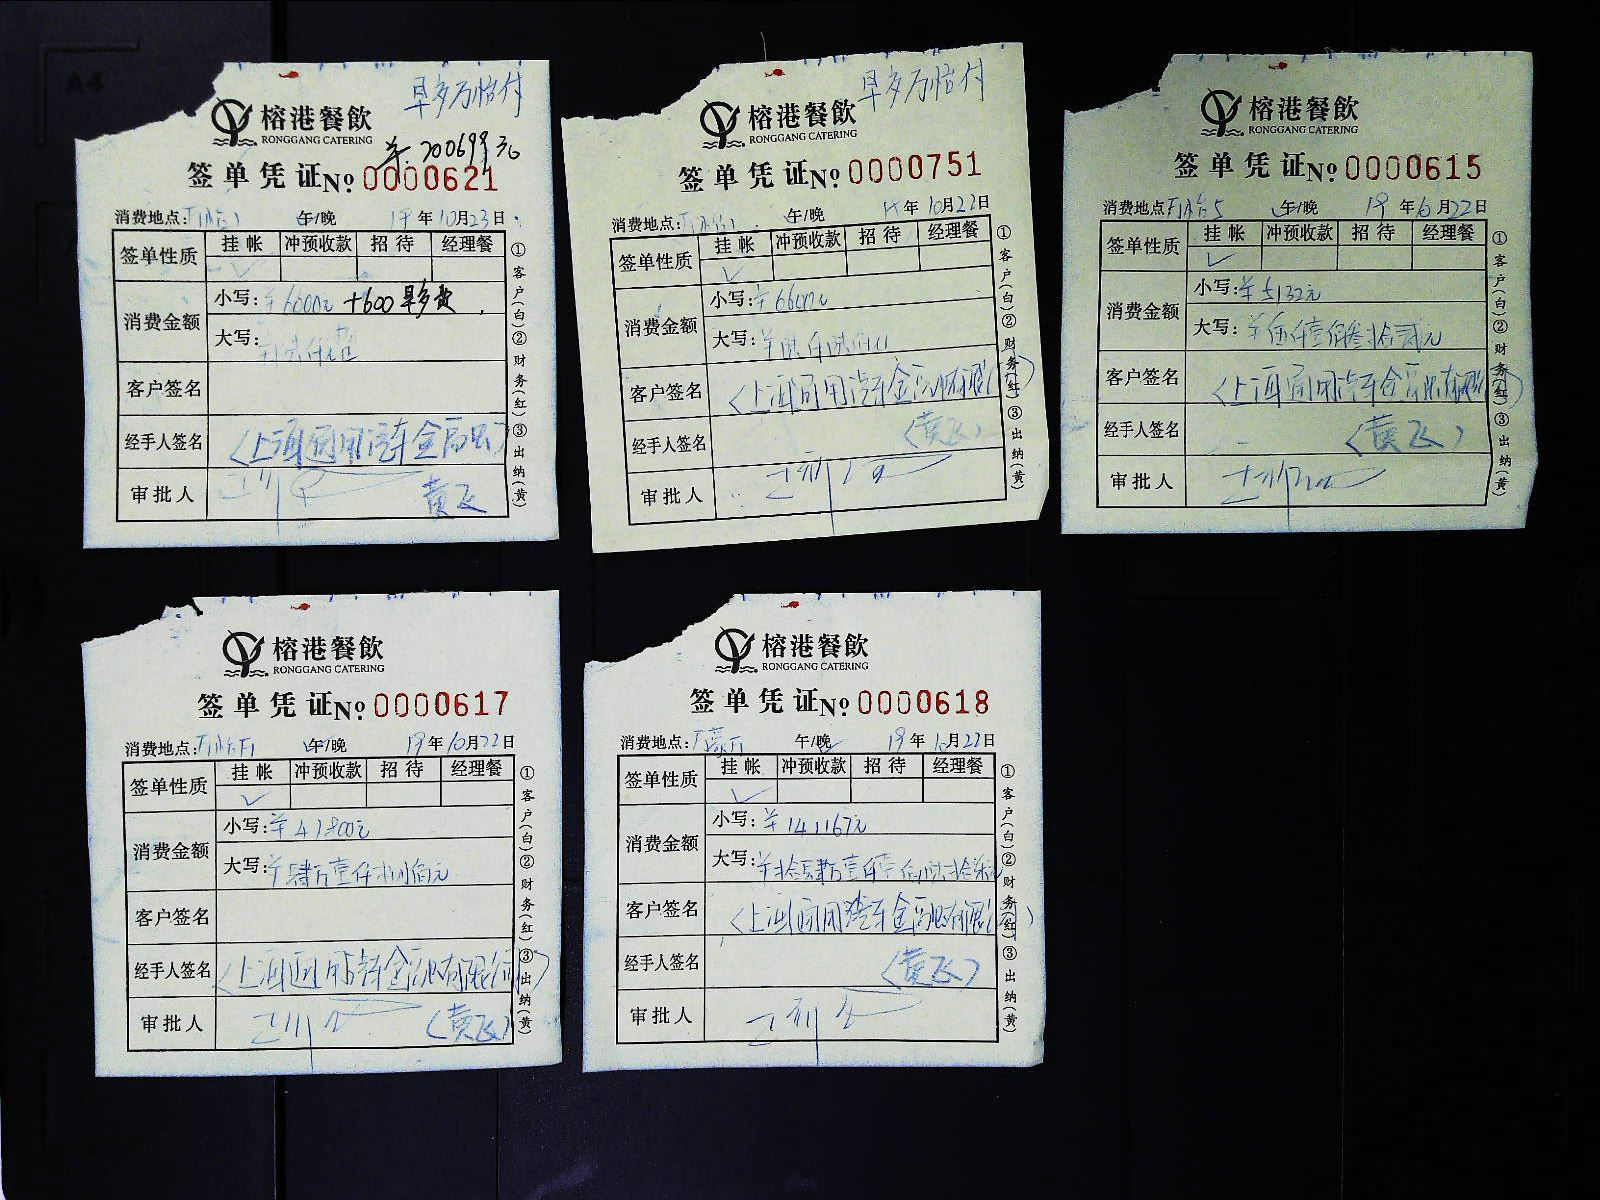 A4
早多万怡付
榕港餐飲
RONGGANG CATERING
羊.200699元
签单凭证No 0000621
消费地点: 午/晚 19年10月23日
签单性质 挂帐 冲预收款 招待 经理餐
消费金额 小写:¥6000元+600早多费
大写:
客户签名
经手人签名
审批人 黄飞
①客户(白)②财务(红)③出纳(黄)
早多万怡付
榕港餐飲
RONGGANG CATERING
签单凭证No 0000751
消费地点: 午/晚 年10月22日
签单性质 挂帐 冲预收款 招待 经理餐
消费金额 小写:¥6600元
大写:
客户签名 (上海通用汽车金融有限公司)
经手人签名 (黄飞)
审批人
①客户(白)②财务(红)③出纳(黄)
榕港餐飲
RONGGANG CATERING
签单凭证No 0000615
消费地点 午/晚 19年10月22日
签单性质 挂帐 冲预收款 招待 经理餐
消费金额 小写:¥5132元
大写:¥伍仟壹佰叁拾贰元
客户签名 (上海通用汽车金融有限公司)
经手人签名 (黄飞)
审批人
①客户(白)②财务(红)③出纳(黄)
榕港餐飲
RONGGANG CATERING
签单凭证No 0000617
消费地点: 午/晚 19年10月22日
签单性质 挂帐 冲预收款 招待 经理餐
消费金额 小写:¥41800元
大写:¥肆万壹仟捌佰元
客户签名
经手人签名 (上海通用汽车金融有限公司)
审批人 (黄飞)
①客户(白)②财务(红)③出纳(黄)
榕港餐飲
RONGGANG CATERING
签单凭证No 0000618
消费地点: 午/晚 19年10月22日
签单性质 挂帐 冲预收款 招待 经理餐
消费金额 小写:¥141167元
大写:¥拾肆万壹仟壹佰陆拾柒元
客户签名 (上海通用汽车金融有限公司)
经手人签名 (黄飞)
审批人
①客户(白)②财务(红)③出纳(黄)